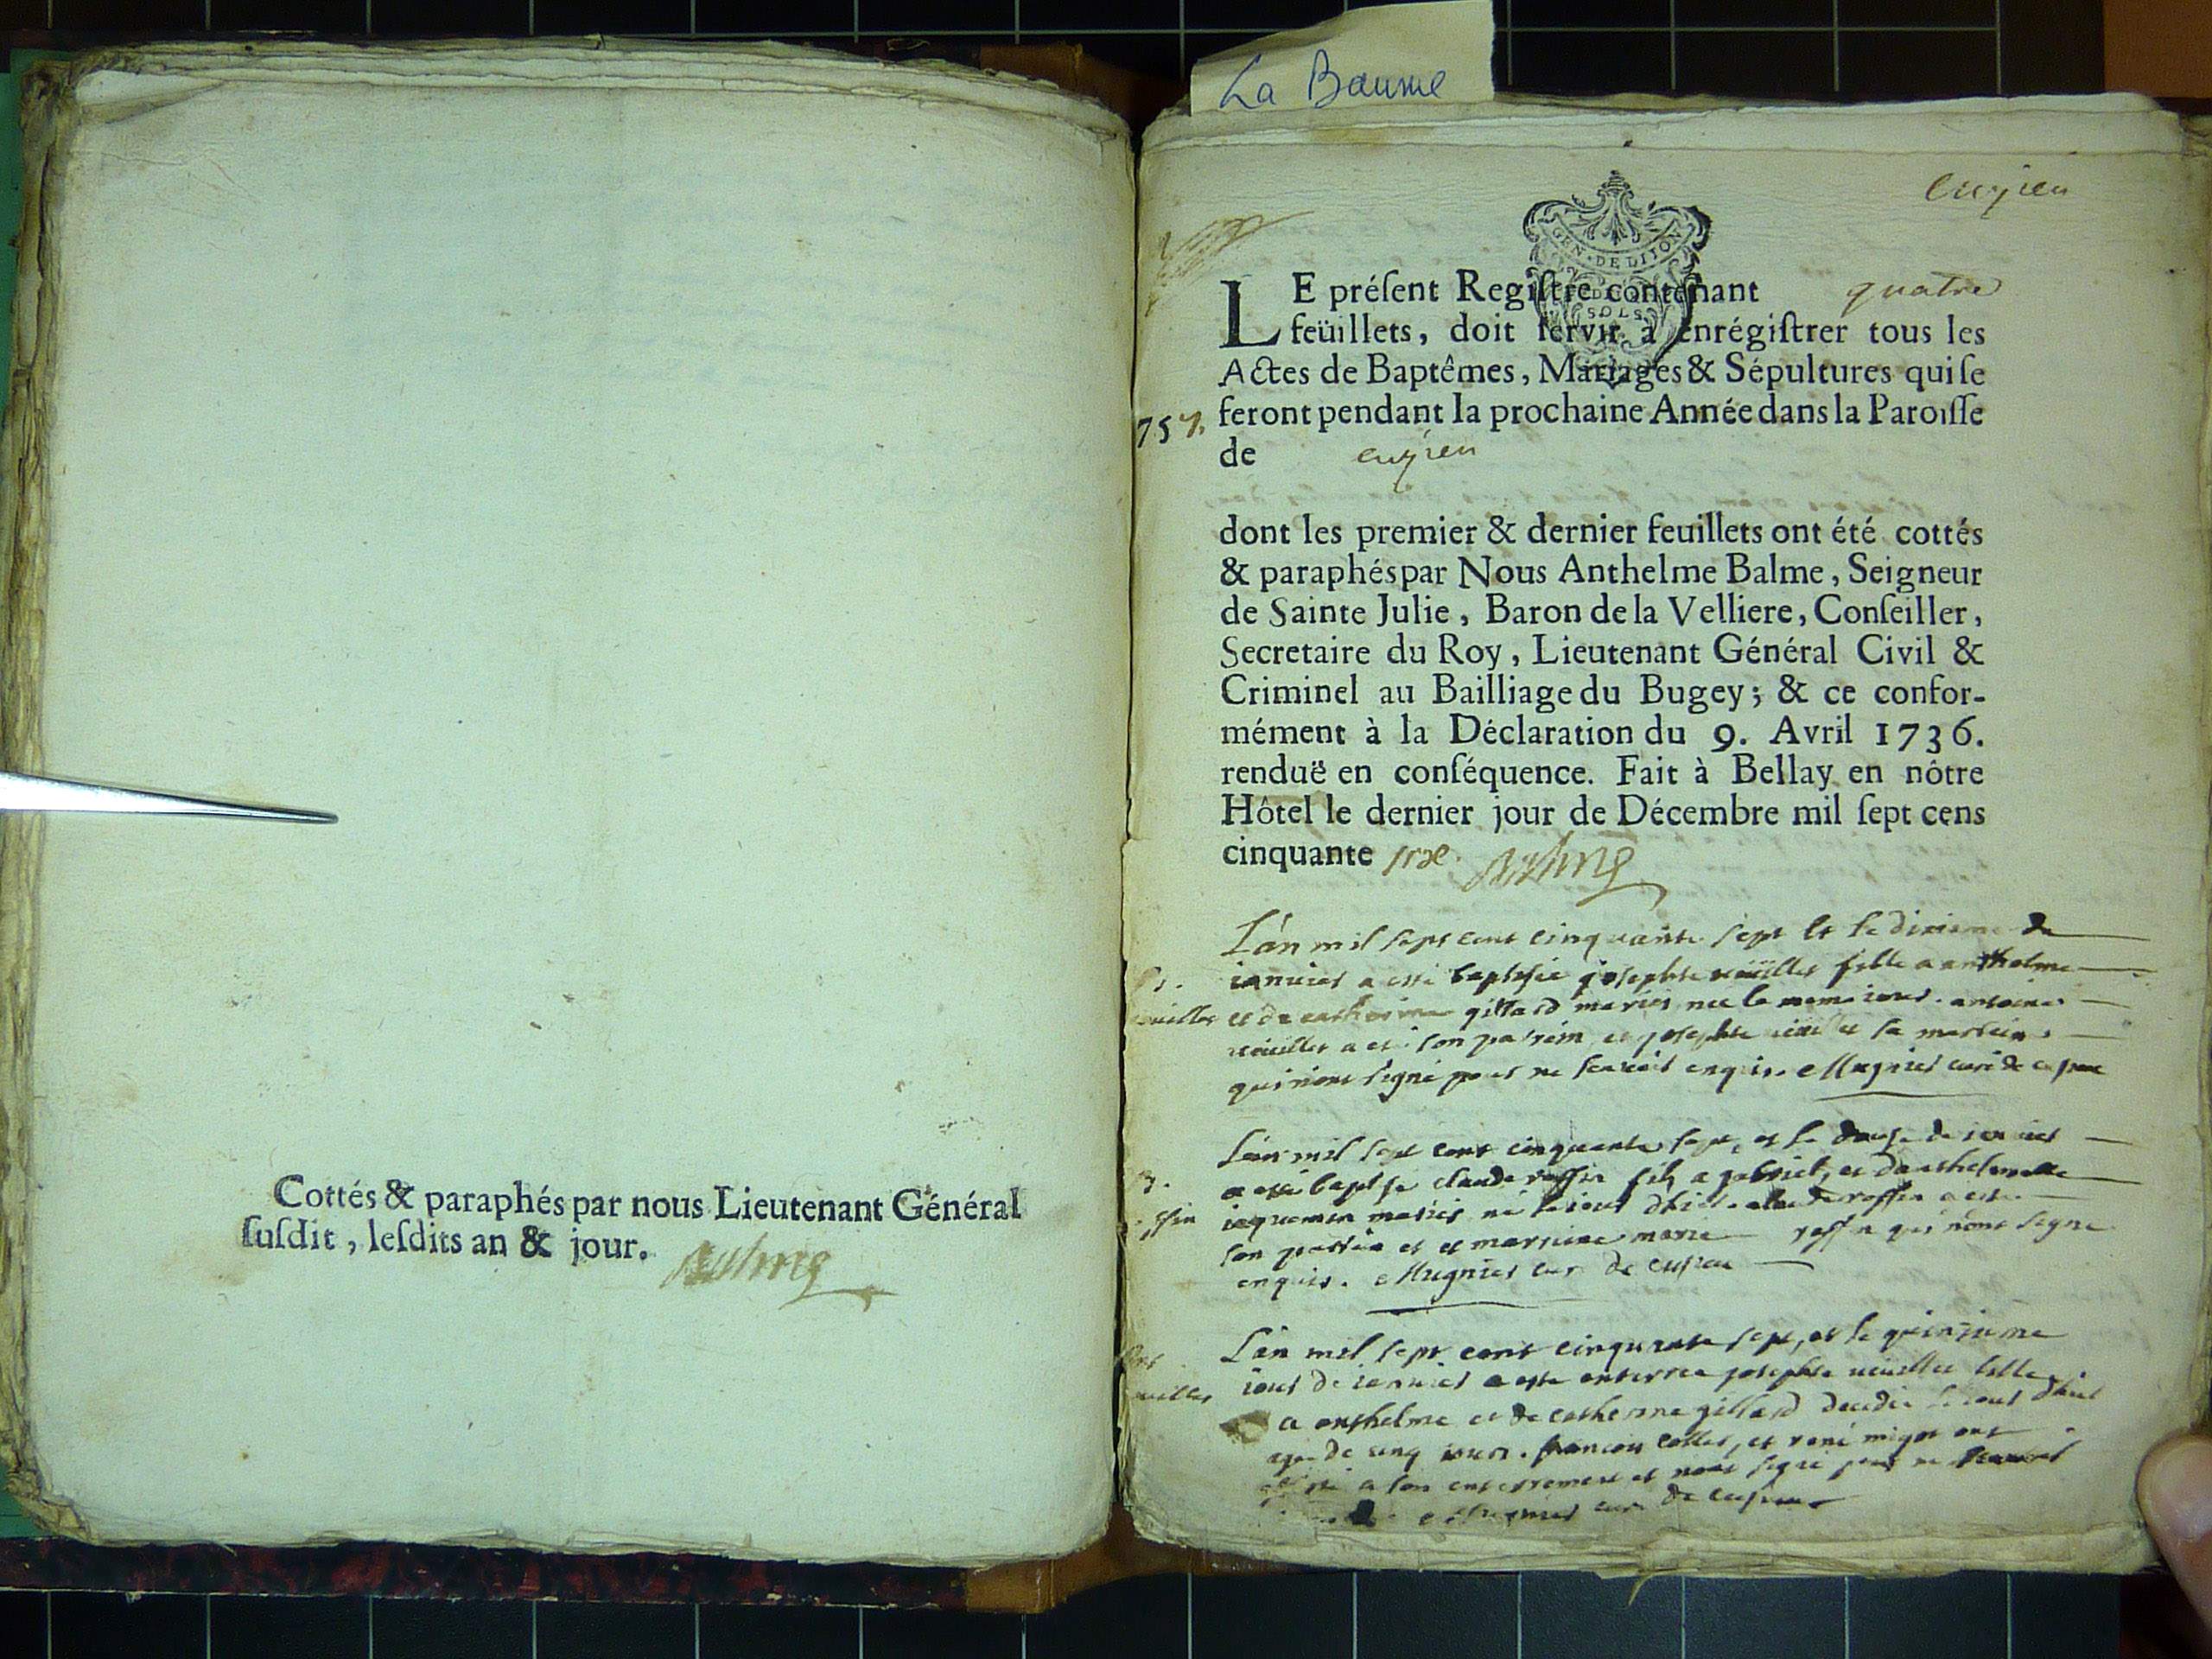 Cottés & paraphés par nous Lieutenant Général
ſuſdit, leſdits an & jour. Balme
La Baume
cuzieu
GEN. DE DIJON
LE préſent Regiſtre contenant quatre
feüillets, doit ſervir à enrégiſtrer tous les
Actes de Baptêmes, Mariages & Sépultures qui ſe
feront pendant la prochaine Année dans la Paroiſſe
757.
de cuzieu
dont les premier & dernier feuillets ont été cottés
& paraphés par Nous Anthelme Balme, Seigneur
de Sainte Julie, Baron de la Velliere, Conſeiller,
Secretaire du Roy, Lieutenant Général Civil &
Criminel au Bailliage du Bugey; & ce confor-
mément à la Déclaration du 9. Avril 1736.
renduë en conſéquence. Fait à Bellay en nôtre
Hôtel le dernier jour de Décembre mil ſept cens
cinquante Balme
L'an mil sept cent cinquante sept et le dixieme de
ianvier a esté baptisée josephte fille a anthelme
et de catherine gillard mariés nee le meme iour. antoine
a eté son parrein et josephte sa marreine
qui n'ont signé pour ne scavoir enquis. Mugnier curé de
L'an mil sept cent cinquante sept, et le douze de ianvier
a esté baptisé claude roffin fils a gabriel, et d'anthelmette
iaquemin mariés né le iour d'hier. claude roffin a esté
son parrein et et marreine marie roffin qui n'ont signe
enquis. Mugnier curé de cusieu
L'an mil sept cent cinquante sept, et le quinzieme
iour de ianvier a esté enterree josephte fille
a anthelme et de catherine gillard decedée le iour d'hier
agée de cinq iours. francois et rené migot ont
a son enterrement et n'ont signé pour ne scavoir
Mugnier curé de cusieu